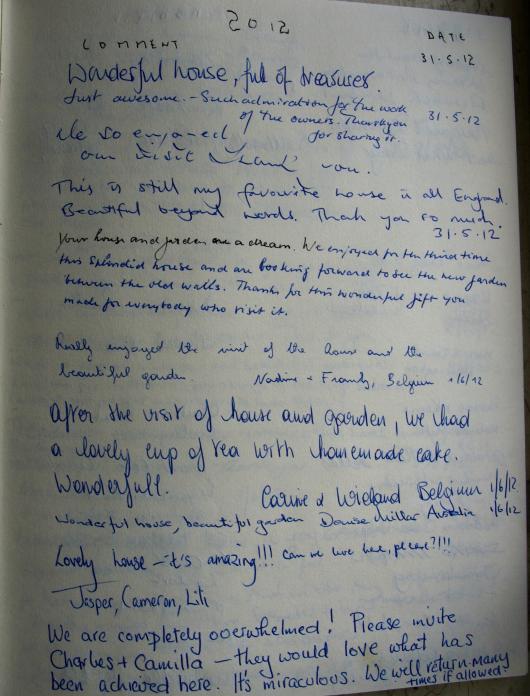 2012
COMMENT DATE
31.5.12
Wonderful house, full of treasures.
Just awesome. - Such admiration for the work
of the owners. Thank you 31.5.12
for sharing it.
We so enjoyed
our visit Thank you.
This is still my favourite house in all England.
Beautiful beyond words. Thank you so much.
31.5.12
Your house and garden are a dream. We enjoyed for the third time
this splendid house and are booking forward to see the new garden
between the old walls. Thanks for this wonderful gift you
made for everybody who visit it.
Really enjoyed the visit of the house and the
beautiful garden. Nadine + Belgium 1/6/12
After the visit of house and garden, we had
a lovely cup of tea with homemade cake.
Wonderfull.
Carine & Wieland Belgium 1/6/12
Wonderful house, beautiful garden Denise Millar Australia 1/6/12
Lovely house - it's amazing!!! Can we live here, please?!!!
Jasper, Cameron, Lili
We are completely overwhelmed! Please invite
Charles + Camilla - they would love what has
been achieved here. It's miraculous. We will return many
times if allowed!